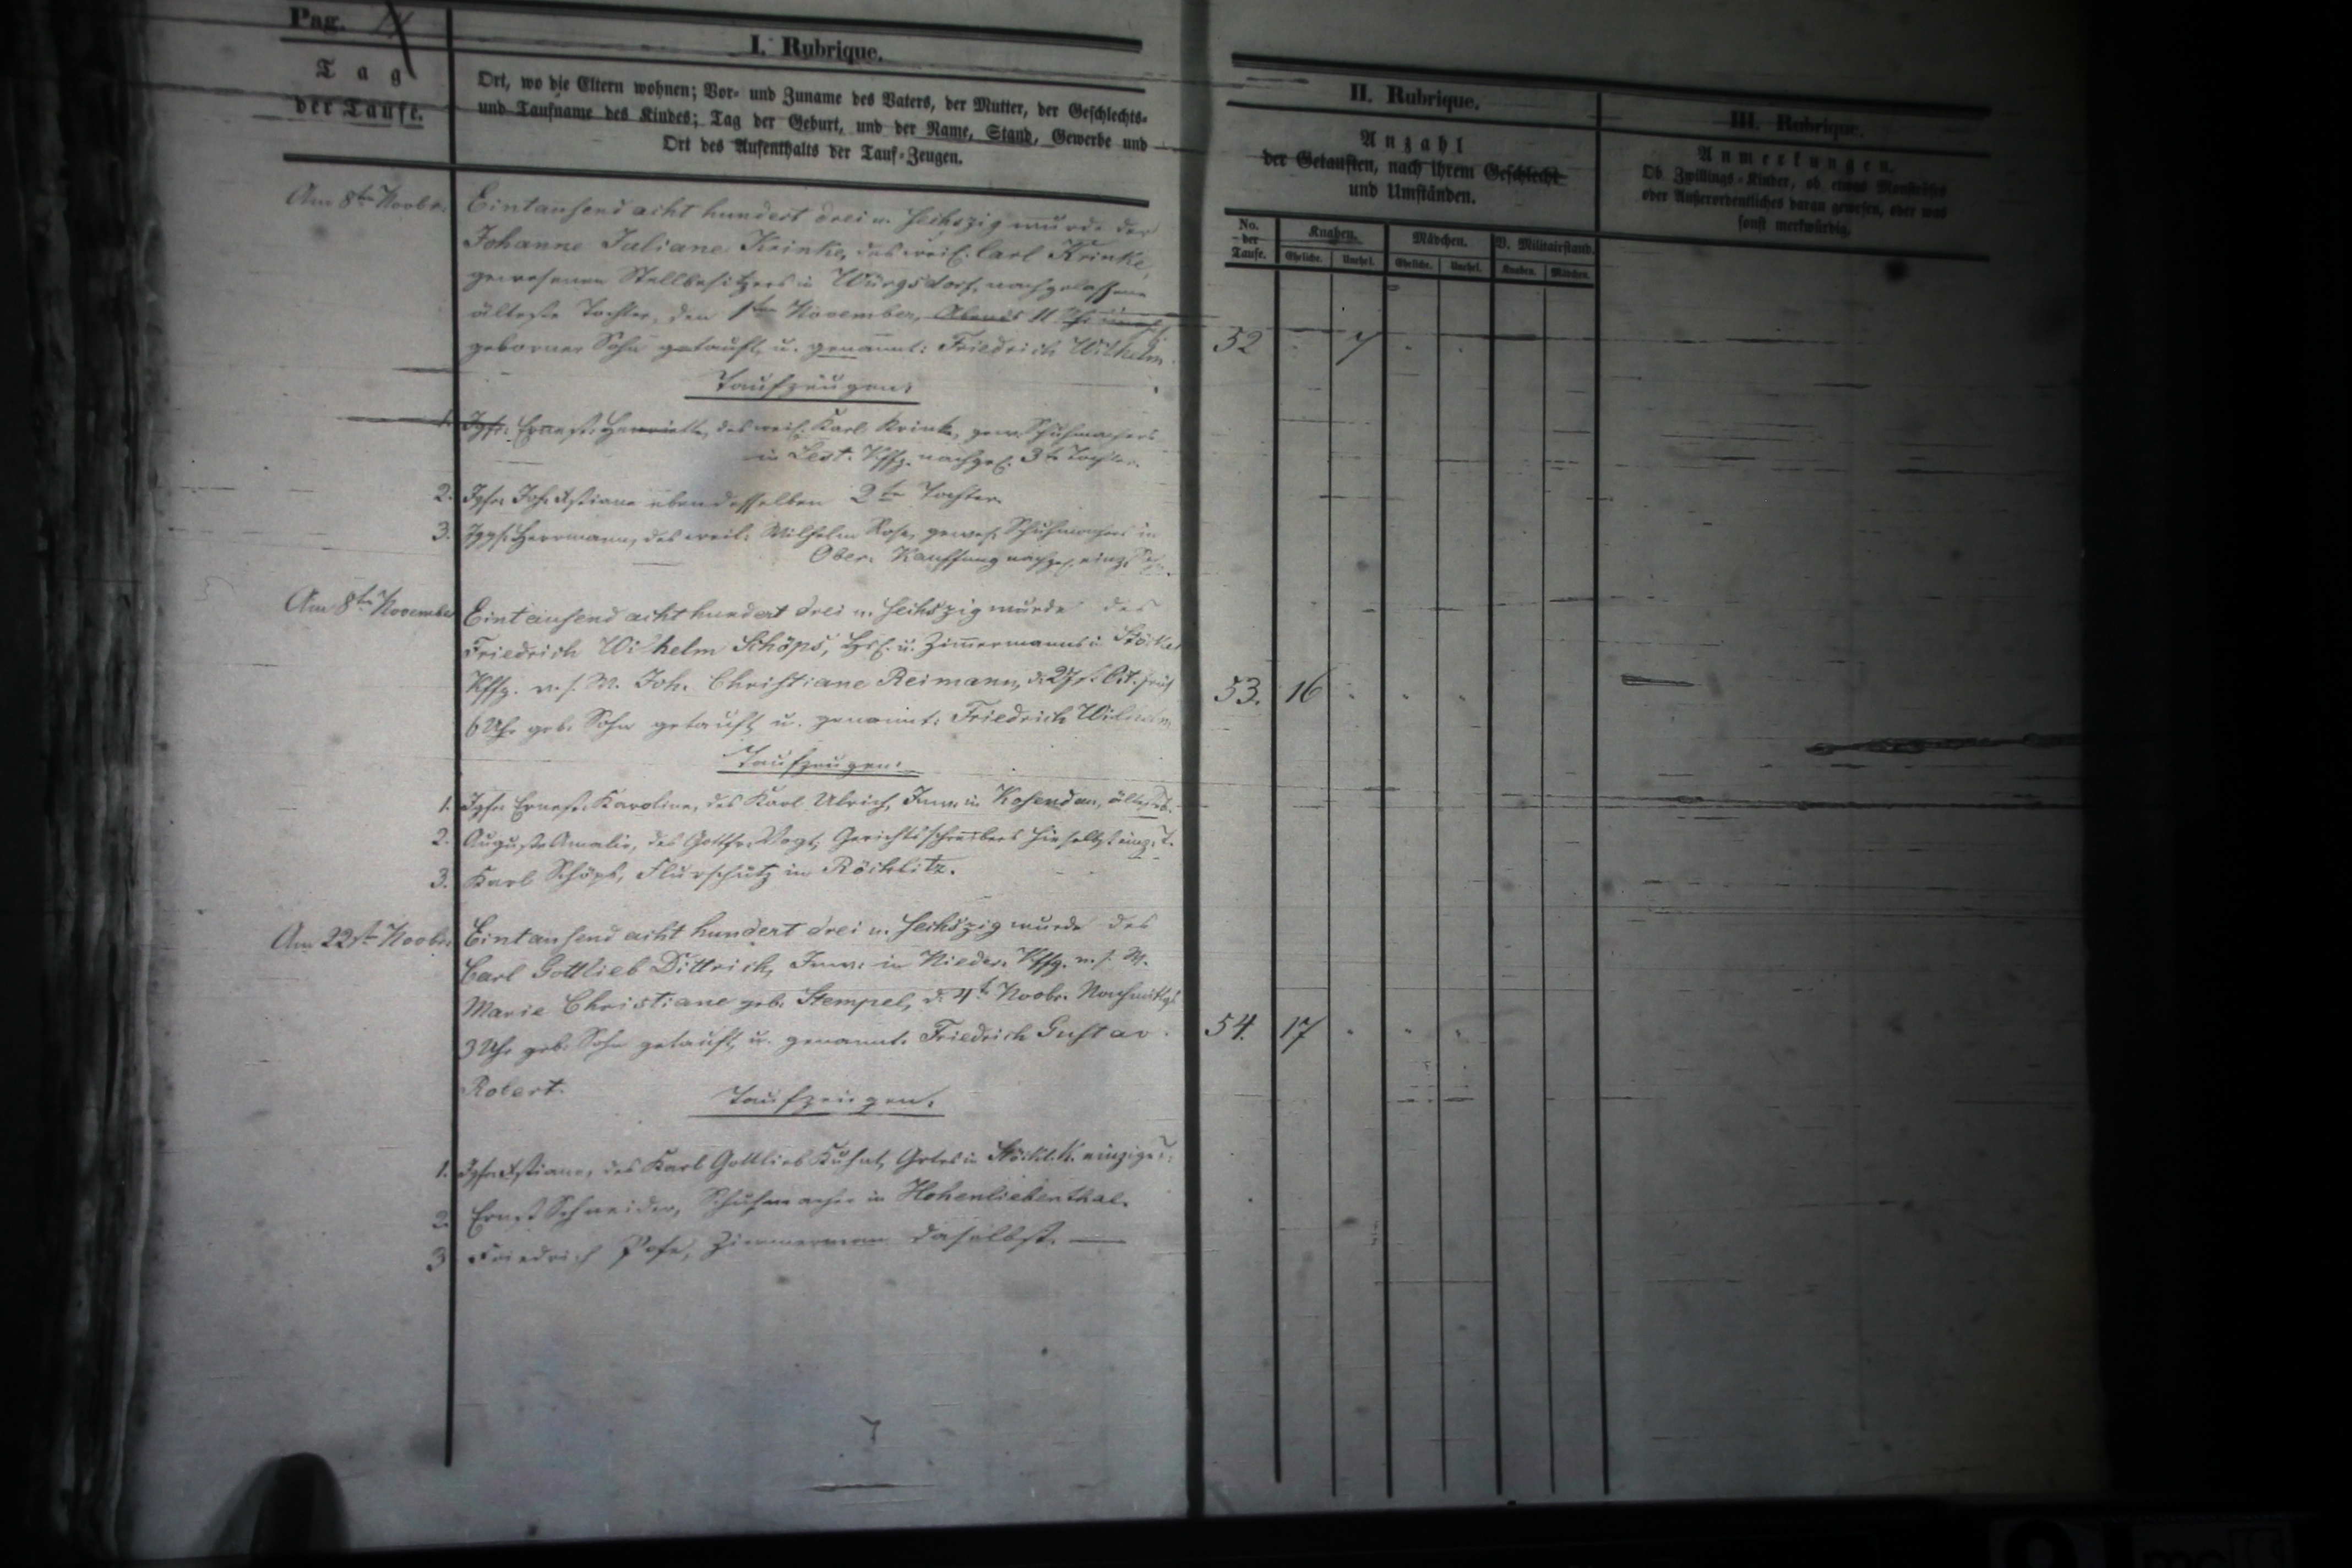 Pag.
Tag
der Taufe.
I. Rubrique.
Ort, wo die Eltern wohnen; Vor- und Zuname des Vaters, der Mutter, der Geschlechts-
und Taufname des Kindes; Tag der Geburt, und der Name, Stand, Gewerbe und
Ort des Aufenthalts der Tauf-Zeugen.
II. Rubrique.
Anzahl
der Getauften, nach ihrem Geschlecht
und Umständen.
III. Rubrique.
Anmerkungen.
Ob Zwillings-Kinder, ob etwas Monströses
oder Außerordentliches daran gewesen, oder was
sonst merkwürdig.
No. der Taufe.
Knaben.
Mädchen.
V. Militairstand.
Eheliche. Unehel. Eheliche. Unehel. Knaben. Mädchen.
Am 8ten Novbr.
Eintausend acht hundert drei u. sechszig wurde der
Johanne Juliane Krinke, des weil. Carl Krinke,
gewesenen Stellbesitzers in Würgsdorf, nachgelassene
älteste Tochter, den 1ten November, Abends 11 Uhr unehel.
geborner Sohn getauft, u. genannt: Friedrich Wilhelm.
52 7
Taufzeugen:
1. Igfr. Ernest. Henriette, des weil. Karl Krinke, gew. Schuhmachers
in Lest. Kffg. nachgel. 3te Tochter.
2. Igfr. Joh. Xstiane ebendesselben 2te Tochter.
3. Iggs. Herrmann, des weil. Wilhelm Rose, gewes. Schuhmachers in
Ober. Kauffung nachgel. einz. Sohn.
Am 8ten November
Eintausend acht hundert drei u. sechszig wurde des
Friedrich Wilhelm Schöps, u. Zimmermanns i. Stöckel
Kffg. v. s. W. Joh. Christiane Reimann, d. 27 s. Oct. früh
6 Uhr geb. Sohn getauft u. genannt: Friedrich Wilhelm
53. 16
Taufzeugen:
1. Igfr. Ernest. Karoline, des Karl Ulrich, Inw. in Kosendau, älteste T.
2. Auguste Amalie, des Gottfr. Vogt, Gerichtsschreibers hieselbst einz. T.
3. Karl Schöps, Flurschütz in Röchlitz.
Am 22st Novbr.
Eintausend acht hundert drei u. sechszig wurde des
Carl Gottlieb Dittrich, Inw. in Nieder. Kffg. v. s. W.
Marie Christiane geb. Stempel, d. 4t Novbr. Nachmittgs
3 Uhr geb. Sohn getauft, u. genannt. Friedrich Gustav
Robert.
54. 17
Taufzeugen.
1. Igfr. Xstiane, des Karl Gottlieb Kuhnt, in Stöckl. K. einzige T.
2. Ernst Schneider, Schuhmacher in Hohenliebenthal.
3. Friedrich Zimmermann daselbst. —